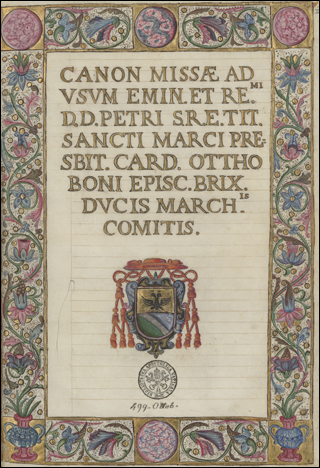 CANON MISSÆ AD
VSVM EMIN. ET RE.MI
D.D. PETRI S.R.E. TIT.
SANCTI MARCI PRE-
SBIT. CARD. OTTHO
BONI EPISC. BRIX.
DVCIS MARCH.IS
COMITIS.
499. Ottob.